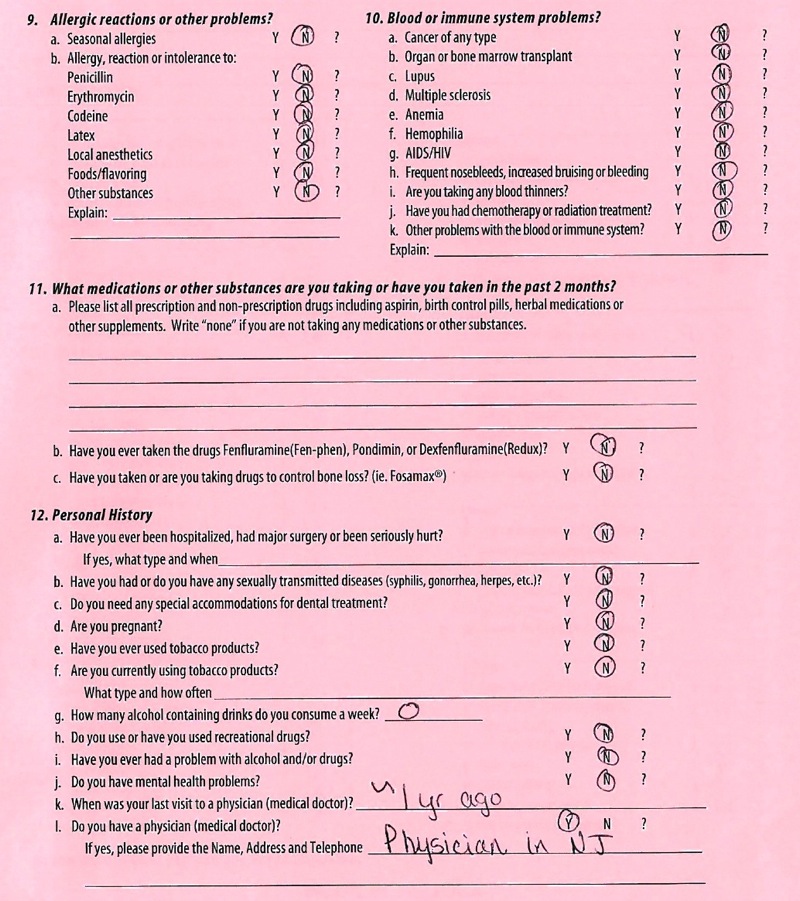 9. Allergic reactions or other problems?
a. Seasonal allergies Y N ?
b. Allergy, reaction or intolerance to:
Penicillin Y N ?
Erythromycin Y N ?
Codeine Y N ?
Latex Y N ?
Local anesthetics Y N ?
Foods/flavoring Y N ?
Other substances Y N ?
Explain:
10. Blood or immune system problems?
a. Cancer of any type Y N ?
b. Organ or bone marrow transplant Y N ?
c. Lupus Y N ?
d. Multiple sclerosis Y N ?
e. Anemia Y N ?
f. Hemophilia Y N ?
g. AIDS/HIV Y N ?
h. Frequent nosebleeds, increased bruising or bleeding Y N ?
i. Are you taking any blood thinners? Y N ?
j. Have you had chemotherapy or radiation treatment? Y N ?
k. Other problems with the blood or immune system? Y N ?
Explain:
11. What medications or other substances are you taking or have you taken in the past 2 months?
a. Please list all prescription and non-prescription drugs including aspirin, birth control pills, herbal medications or
other supplements. Write "none" if you are not taking any medications or other substances.
b. Have you ever taken the drugs Fenfluramine(Fen-phen), Pondimin, or Dexfenfluramine(Redux)? Y N ?
c. Have you taken or are you taking drugs to control bone loss? (ie. Fosamax®) Y N ?
12. Personal History
a. Have you ever been hospitalized, had major surgery or been seriously hurt? Y N ?
If yes, what type and when
b. Have you had or do you have any sexually transmitted diseases (syphilis, gonorrhea, herpes, etc.)? Y N ?
c. Do you need any special accommodations for dental treatment? Y N ?
d. Are you pregnant? Y N ?
e. Have you ever used tobacco products? Y N ?
f. Are you currently using tobacco products? Y N ?
What type and how often
g. How many alcohol containing drinks do you consume a week? 0
h. Do you use or have you used recreational drugs? Y N ?
i. Have you ever had a problem with alcohol and/or drugs? Y N ?
j. Do you have mental health problems? Y N ?
k. When was your last visit to a physician (medical doctor)? ~1 yr ago
l. Do you have a physician (medical doctor)? Y N ?
If yes, please provide the Name, Address and Telephone Physician in NJ